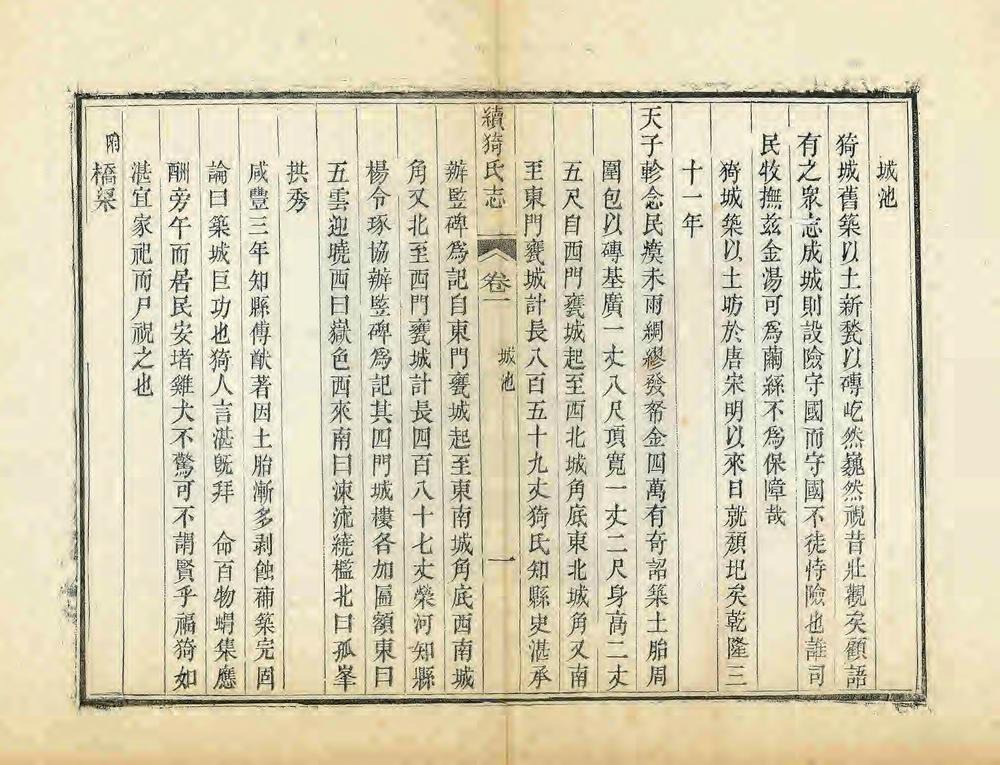 城池
猗城舊築以土新甃以磚屹然巍然視昔壯觀矣顧語
有之衆志成城則設險守國而守國不徒恃險也誰司
民牧撫茲金湯可爲繭絲不爲保障哉
猗城築以土昉於唐宋明以來日就頹圯矣乾隆三
十一年
天子軫念民瘼未雨綢繆發帑金四萬有奇詔築土胎周
圍包以磚基廣一丈八尺頂寬一丈二尺身高二丈
五尺自西門甕城起至西北城角底東北城角又南
至東門甕城計長八百五十九丈猗氏知縣史湛承
續猗氏志 卷一 城池 一
辦監碑爲記自東門甕城起至東南城角底西南城
角又北至西門甕城計長四百八十七丈榮河知縣
楊令琢協辦監碑爲記其四門城樓各加匾額東曰
五雲迎曉西曰嶽色西來南曰涑流繞檻北曰孤峯
拱秀
咸豐三年知縣傅猷著因土胎漸多剥蝕補築完固
論曰築城巨功也猗人言湛旣拜 命百物蝟集應
酬旁午而居民安堵雞犬不驚可不謂賢乎福猗如
湛宜家祀而尸祝之也
附橋梁